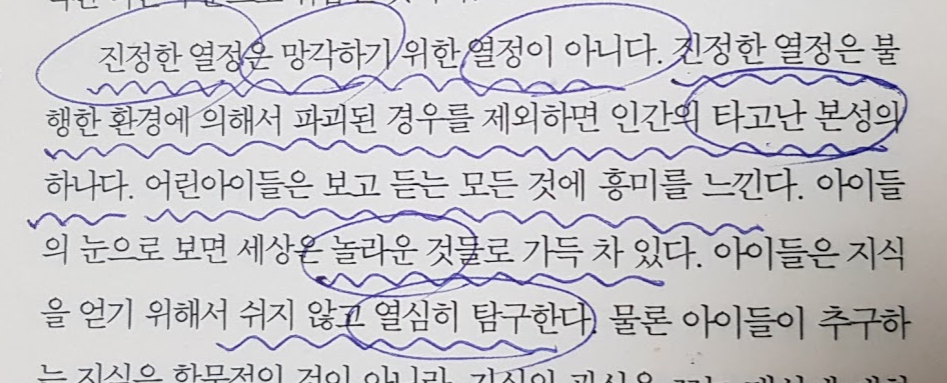 진정한 열정은 망각하기 위한 열정이 아니다. 진정한 열정은 불
행한 환경에 의해서 파괴된 경우를 제외하면 인간의 타고난 본성의
하나다. 어린아이들은 보고 듣는 모든 것에 흥미를 느낀다. 아이들
의 눈으로 보면 세상은 놀라운 것들로 가득 차 있다. 아이들은 지식
을 얻기 위해서 쉬지 않고 열심히 탐구한다. 물론 아이들이 추구하
는 지식은 학문적인 것이 아니라